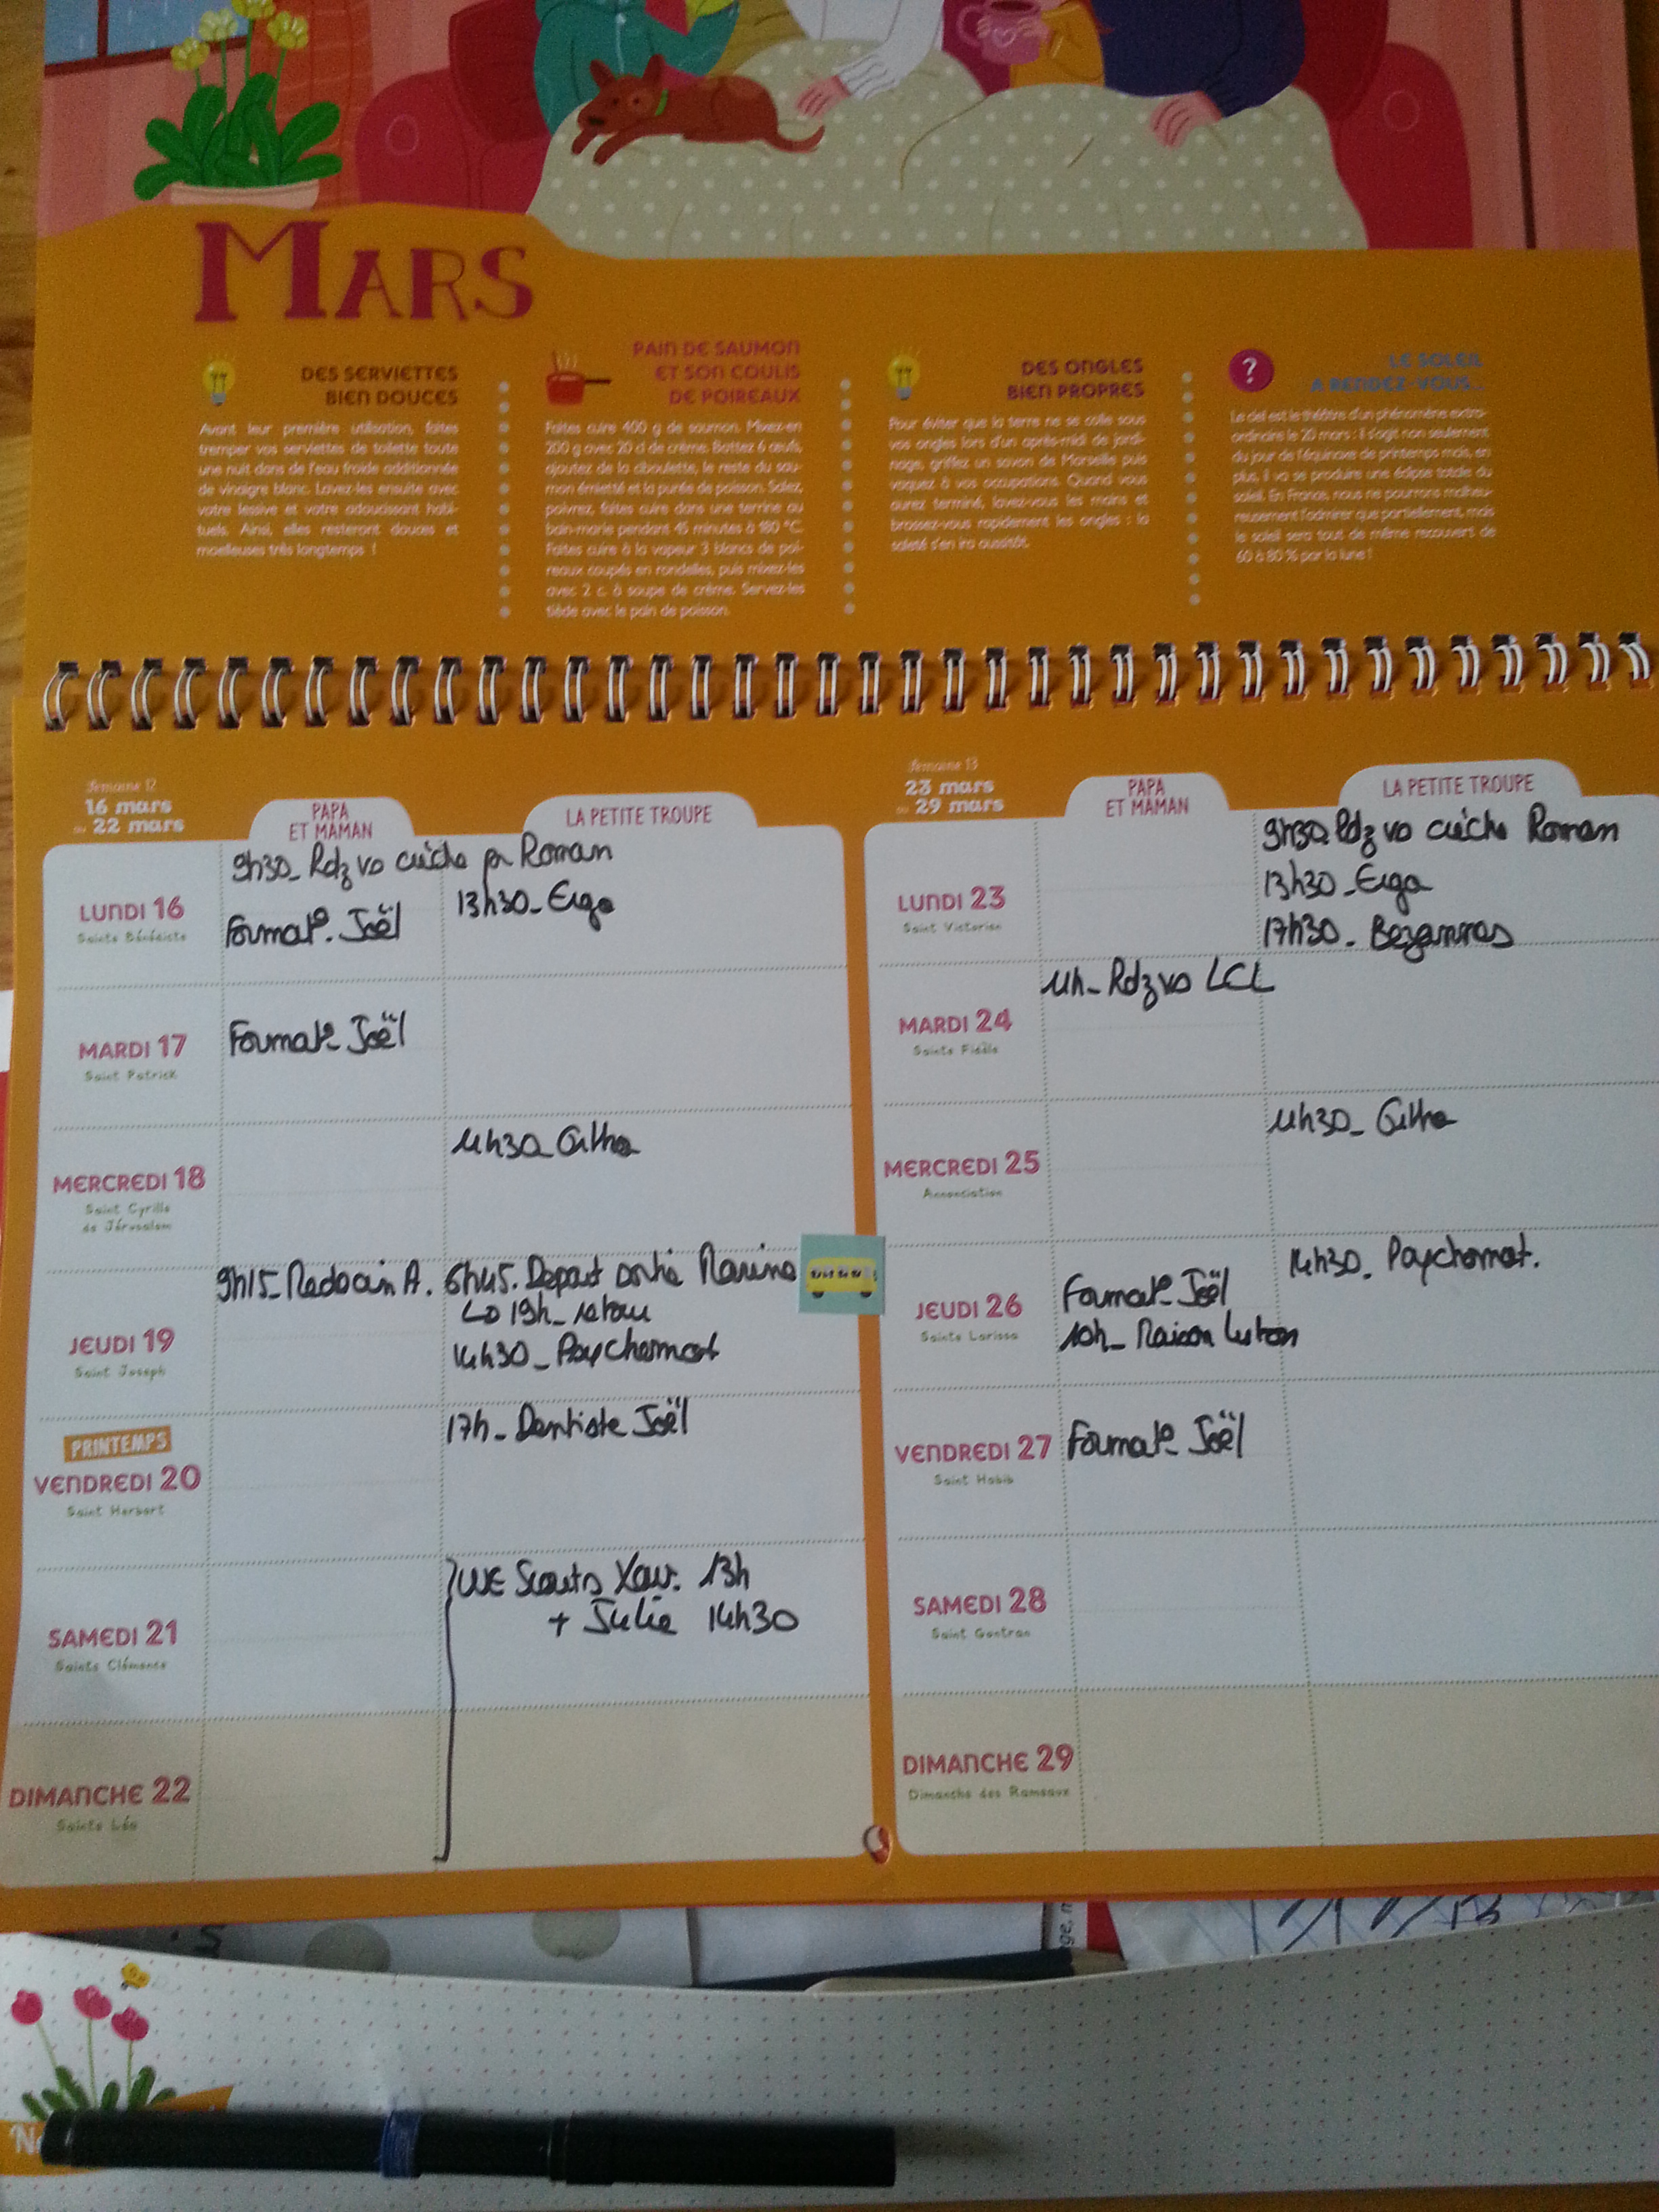 MARS
DES SERVIETTES
BIEN DOUCES
Avant leur première utilisation, faites
tremper vos serviettes de toilette toute
une nuit dans de l'eau froide additionnée
de vinaigre blanc. Lavez-les ensuite avec
votre lessive et votre adoucissant habi-
tuels. Ainsi, elles resteront douces et
moelleuses très longtemps !
PAIN DE SAUMON
ET SON COULIS
DE POIREAUX
Faites cuire 400 g de saumon. Mixez-en
200 g avec 20 cl de crème. Battez 6 œufs,
ajoutez de la ciboulette, le reste du sau-
mon émietté et la purée de poisson. Salez,
poivrez, faites cuire dans une terrine au
bain-marie pendant 45 minutes à 180 °C.
Faites cuire à la vapeur 3 blancs de poi-
reaux coupés en rondelles, puis mixez-les
avec 2 c. à soupe de crème. Servez-les
tiède avec le pain de poisson.
DES ONGLES
BIEN PROPRES
Pour éviter que la terre ne se colle sous
vos ongles lors d'un après-midi de jardi-
nage, griffez un savon de Marseille puis
vaquez à vos occupations. Quand vous
aurez terminé, lavez-vous les mains et
brossez-vous rapidement les ongles : la
saleté s'en ira aussitôt.
?
LE SOLEIL
A RENDEZ-VOUS...
Le ciel est le théâtre d'un phénomène extra-
ordinaire le 20 mars : il s'agit non seulement
du jour de l'équinoxe de printemps mais, en
plus, il va se produire une éclipse totale du
soleil. En France, nous ne pourrons malheu-
reusement l'admirer que partiellement, mais
le soleil sera tout de même recouvert de
60 à 80 % par la lune !
Semaine 12
16 mars
au 22 mars
PAPA
ET MAMAN
LA PETITE TROUPE
LUNDI 16
Sainte Bénédicte
9h30_ Rdz vs crèche pr Roman
Format°. Joël
13h30_ Ergo
MARDI 17
Saint Patrick
Format° Joël
MERCREDI 18
Saint Cyrille
de Jérusalem
11h30_
JEUDI 19
Saint Joseph
9h15_ Médecin A.
6h45. Départ Marine
19h_ retour
14h30_ Psychomot
PRINTEMPS
VENDREDI 20
Saint Herbert
17h_ Dentiste Joël
SAMEDI 21
Sainte Clémence
WE Scouts Xav. 13h
+ Julie 14h30
DIMANCHE 22
Sainte Léa
Semaine 13
23 mars
au 29 mars
PAPA
ET MAMAN
LA PETITE TROUPE
LUNDI 23
Saint Victorien
9h30. Rdz vs crèche Roman
13h30_ Ergo
17h30_ Bezannes
MARDI 24
11h_ Rdz vs LCL
MERCREDI 25
Annonciation
11h30_
JEUDI 26
Sainte Larissa
Format° Joël
10h_
14h30_ Psychomot.
VENDREDI 27
Saint Habib
Format° Joël
SAMEDI 28
Saint Gontran
DIMANCHE 29
Dimanche des Rameaux